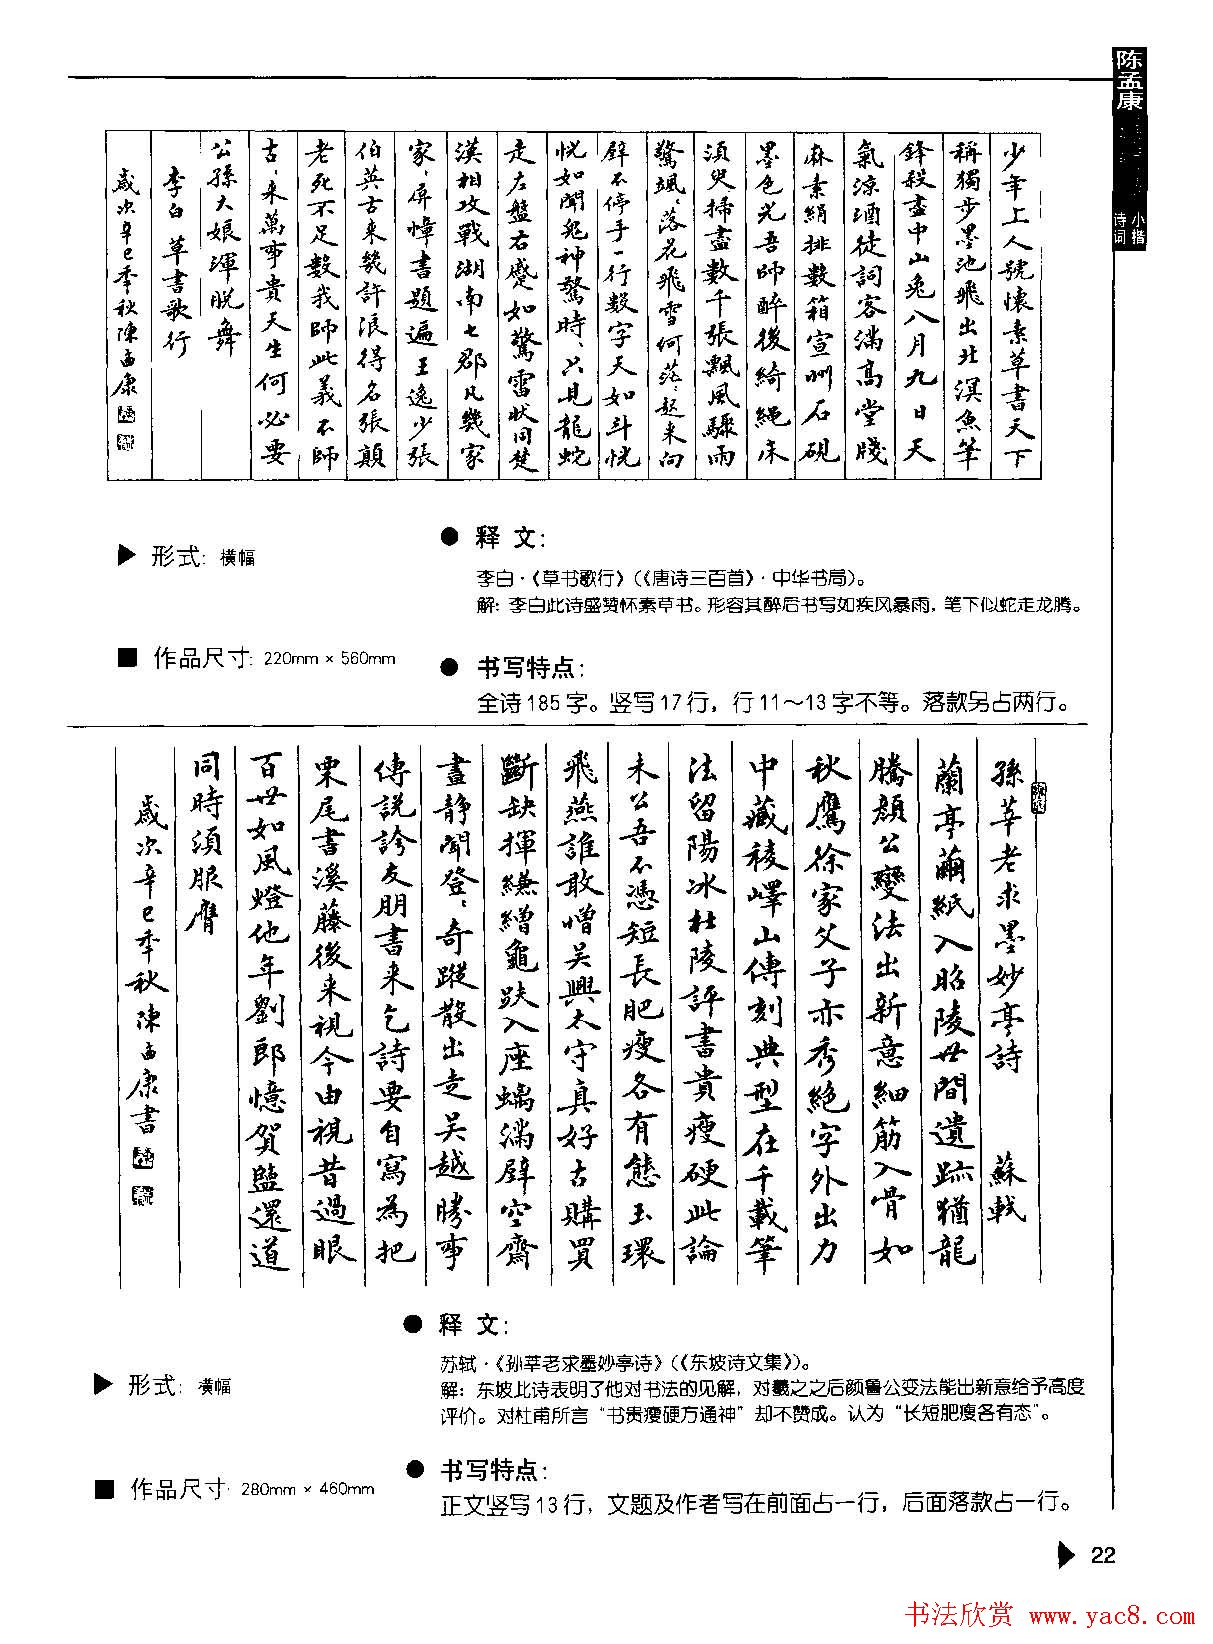 陈孟康
小楷
诗词
少年上人號懷素草書天下
稱獨步墨池飛出北溟魚筆
鋒殺盡中山兔八月九日天
氣涼酒徒詞客滿高堂牋
麻素絹排數箱宣州石硯
墨色光吾師醉後綺繩床
須臾掃盡數千張飄風驟雨
驚颯〻落花飛雪何茫〻起来向
壁不停手一行數字天如斗恍
恍如聞鬼神驚時〻只見龍蛇
走左盤右蹙如驚雷狀同楚
漢相攻戰湖南七郡凡幾家
家〻屏幛書題遍王逸少張
伯英古来幾許浪得名張顛
老死不足數我師此義不師
古〻来萬事貴天生何必要
公孫大娘渾脫舞
李白草書歌行
歲次辛巳季秋陳孟康
▶ 形式: 横幅
■ 作品尺寸: 220mm × 560mm
● 释 文:
李白·《草书歌行》(《唐诗三百首》·中华书局)。
解: 李白此诗盛赞怀素草书。形容其醉后书写如疾风暴雨, 笔下似蛇走龙腾。
● 书写特点:
全诗185字。竖写17行, 行11～13字不等。落款另占两行。
孫莘老求墨妙亭詩 蘇軾
蘭亭繭紙入昭陵世間遺跡猶龍
騰顏公變法出新意細筋入骨如
秋鷹徐家父子亦秀絕字外出力
中藏稜嶧山傳刻典型在千載筆
法留陽冰杜陵評書貴瘦硬此論
未公吾不憑短長肥瘦各有態玉環
飛燕誰敢憎吳興太守真好古購買
斷缺揮縑繒龜趺入座螭滿壁空齋
晝靜聞登〻奇蹤散出走吳越勝事
傳說誇友朋書来乞詩要自寫為把
栗尾書溪藤後来視今由視昔過眼
百世如風燈他年劉郎憶賀監還道
同時須服膺
歲次辛巳季秋陳孟康書
▶ 形式: 横幅
■ 作品尺寸: 280mm × 460mm
● 释 文:
苏轼·《孙莘老求墨妙亭诗》(《东坡诗文集》)。
解: 东坡此诗表明了他对书法的见解, 对羲之之后颜鲁公变法能出新意给予高度
评价。对杜甫所言“书贵瘦硬方通神”却不赞成。认为“长短肥瘦各有态”。
● 书写特点:
正文竖写13行, 文题及作者写在前面占一行, 后面落款占一行。
▶ 22
书法欣赏 www.yac8.com